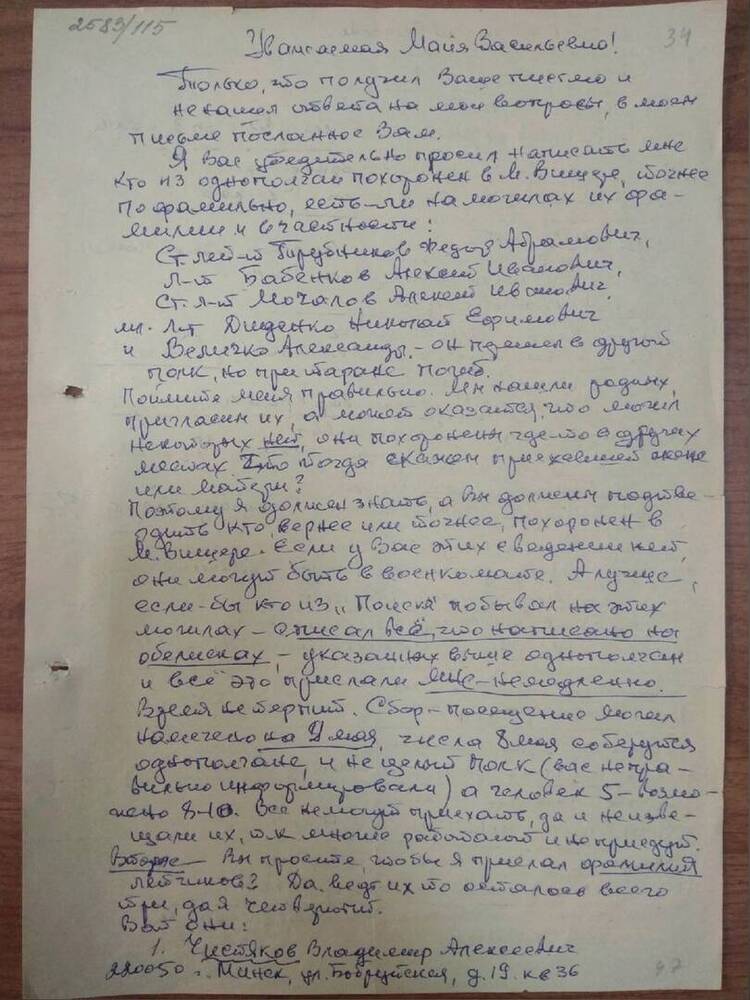 2583/115
34
Уважаемая Майя Васильевна!
Только, что получил Ваше письмо и
не нашел ответа на мои вопросы, в моем
письме посланное Вам.
Я Вас убедительно просил написать мне
кто из однополчан похоронен в М. Вишере, точнее
пофамильно, есть-ли на могилах их фа-
милии и в частности:
Ст. лей-т Трубников Федор Абрамович,
Л-т Бабенков Алексей Иванович,
Ст. л-т Мочалов Алексей Иванович
мл. л-т Диденко Николай Ефимович
и Величко Александр, - он перешел в другой
полк, но при таране погиб.
Поймите меня правильно. Мы нашли родных,
пригласим их, а может оказаться, что могил
некоторых нет, они похоронены где-то в других
местах. Что тогда скажем приехавшей жене
или матери?
Поэтому я должен знать, а Вы должны подтве-
рдить кто, вернее или точнее, похоронен в
М. Вишере. Если у Вас этих сведений нет,
они могут быть в военкомате. А лучше,
если-бы кто из "Поиска" побывал на этих
могилах - описал всё, что написано на
обелисках, - указанных выше однополчан
и всё это прислали мне - немедленно.
Время не терпит. Сбор-посещение могил
намечено на 9 мая, числа 8 мая соберутся
однополчане, и не целый полк (вас непра-
вильно информировали) а человек 5 - возмо-
жно 8-10. Все не могут приехать, да и не изве-
щали их, т.к. многие работают и не приедут.
Второе - Вы просите, чтобы я прислал фамилии
летчиков? Да ведь их то осталось всего
три, да я четвертый.
Вот они:
1. Чистяков Владимир Алексеевич
220050 г. Минск, ул. Бобруйская, д. 19. кв 36